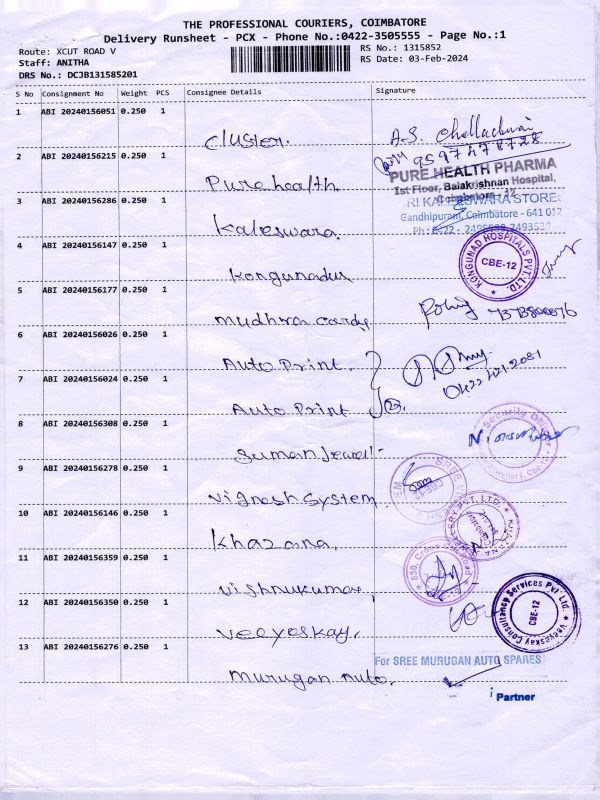 THE PROFESSIONAL COURIERS, COIMBATORE
Delivery Runsheet - PCX - Phone No.:0422-3505555 - Page No.:1
Route: XCUT ROAD V
RS No.: 1315852
Staff: ANITHA
RS Date: 03-Feb-2024
DRS No.: DCJB131585201
S No Consignment No Weight PCS Consignee Details Signature
1 ABI 20240156051 0.250 1
Cluster. A.S. Chelladurai
9597478728
2 ABI 20240156215 0.250 1
PURE HEALTH PHARMA
1st Floor, Balakrishnan Hospital,
Coimbatore - 37
Purehealth
3 ABI 20240156286 0.250 1
Gandhipuram, Coimbatore - 641 012
Kaleswara.
4 ABI 20240156147 0.250 1
KONGUNAD HOSPITALS PVT. LTD.
CBE-12
Kongunadu
5 ABI 20240156177 0.250 1
mudhra cards
6 ABI 20240156026 0.250 1
Auto Print.
0422 421 2081
7 ABI 20240156024 0.250 1
Auto Print
8 ABI 20240156308 0.250 1
Suman Jewel
9 ABI 20240156278 0.250 1
SREE
Vignesh System
10 ABI 20240156146 0.250 1
Khazana.
11 ABI 20240156359 0.250 1
Vishnukumar.
12 ABI 20240156350 0.250 1
Veeyeskay Consultancy Services Pvt Ltd.
CBE-12
Veeyeskay.
13 ABI 20240156276 0.250 1
For SREE MURUGAN AUTO SPARES
Murugan Auto.
Partner